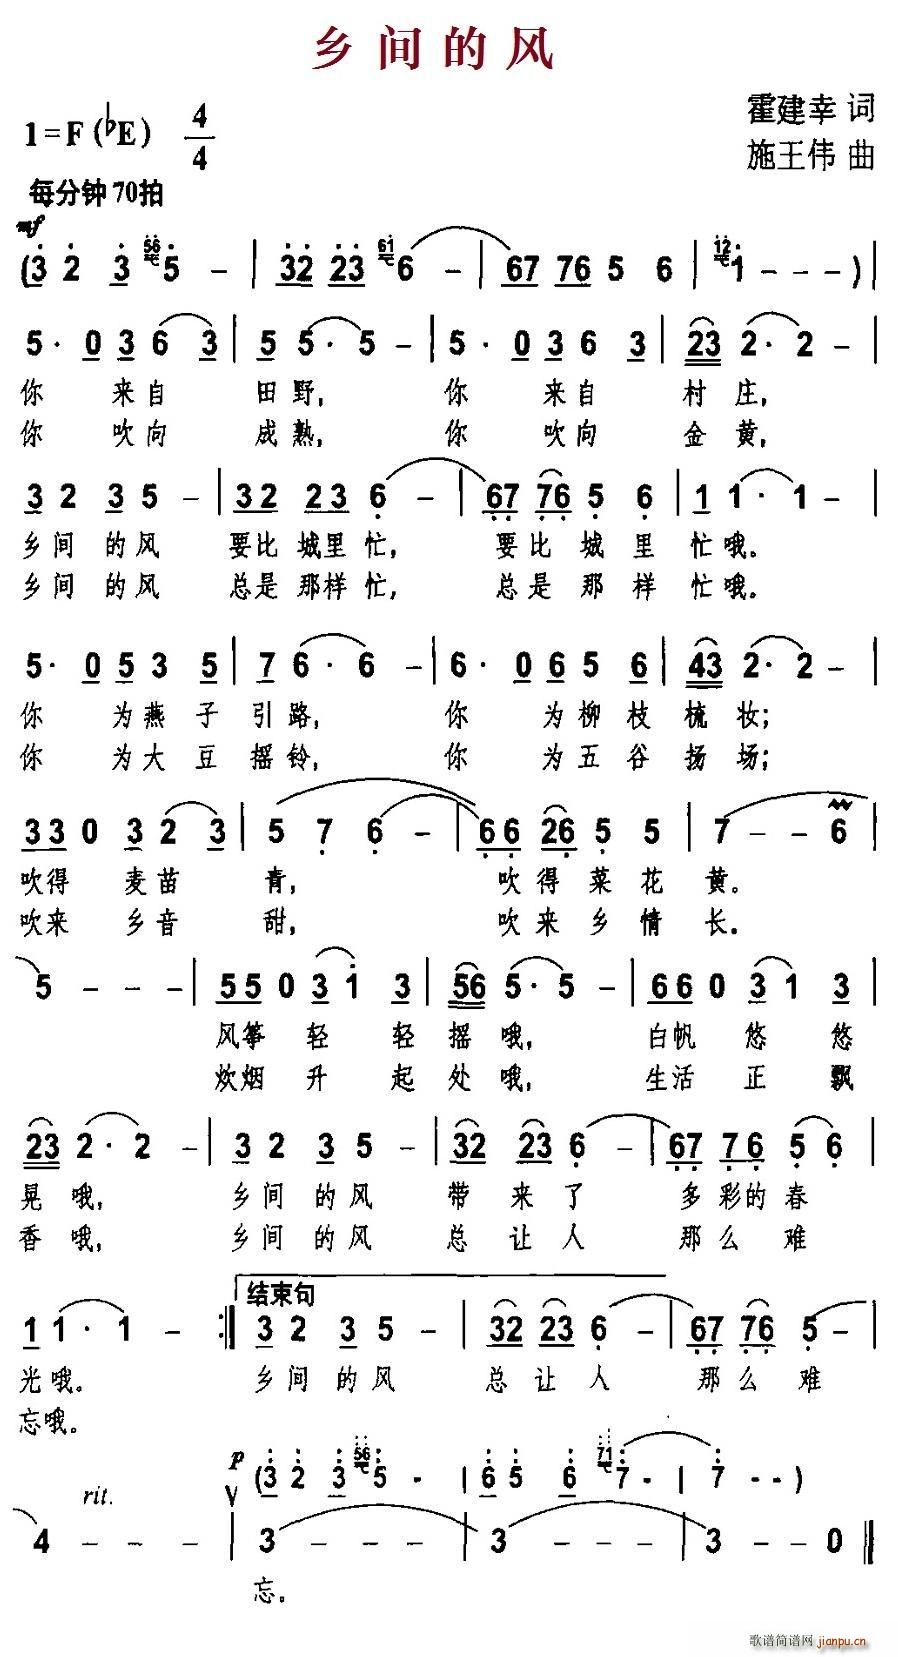 乡间的风
霍建幸 词
1=F(♭E) 4/4
施王伟 曲
每分钟70拍
mf
(3· 2 3 56 5 - | 32 23 61 6 - | 67 76 5 6 | 12 1 - - -) |
5· 0 3 6 3 | 5 5· 5 - | 5· 0 3 6 3 | 23 2· 2 - |
你 来自 田野, 你 来自 村庄,
你 吹向 成熟, 你 吹向 金黄,
3 2 3 5 - | 32 23 6 - | 67 76 5 6 | 1 1· 1 - |
乡间 的风 要比 城里 忙, 要比 城里 忙哦。
乡间 的风 总是 那样 忙, 总是 那样 忙哦。
5· 0 5 3 5 | 7 6· 6 - | 6· 0 6 5 6 | 43 2· 2 - |
你 为燕子 引路, 你 为柳枝 梳妆;
你 为大豆 摇铃, 你 为五谷 扬场;
33 0 3 2 3 | 5 7 6 - | 66 26 5 5 | 7 - - 6 |
吹得 麦苗 青, 吹得 菜花 黄。
吹来 乡音 甜, 吹来 乡情 长。
5 - - - | 55 0 3 1 3 | 56 5· 5 - | 66 0 3 1 3 |
风筝 轻轻 摇哦, 白帆 悠悠
炊烟 升起 处哦, 生活 正飘
23 2· 2 - | 3 2 3 5 - | 32 23 6 - | 67 76 5 6 |
晃哦, 乡间 的风 带来了 多彩的春
香哦, 乡间 的风 总让人 那么难
结束句
1 1· 1 - :‖ 3 2 3 5 - | 32 23 6 - | 67 76 5 - |
光哦。 乡间 的风 总让人 那么难
忘哦。
p (3 2 3 56 5 - | 6 5 6 71 7 - | 7 - -)
rit.
4 - - - | 3 - - - | 3 - - - | 3 - - 0 ‖
忘。
歌谱简谱网 jianpu.cn